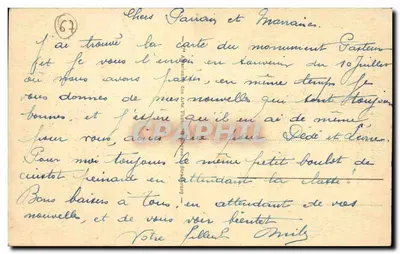 67
Chers Parrain et Marraine.
J'ai trouvé la carte du monument Pasteur
et je vous l'envoie en souvenir du 10 Juillet
où nous avons passés, en même temps je
vous donnes de mes nouvelles qui sont toujours
bonnes, et j'espère qu'il en ai de même
pour vous, ainsi que pour Dédé et
Pour moi toujours le même petit boulot de
cuistot peinard en attendant la classe!
Bons baisers à tous, en attendant de vos
nouvelles, et de vous voir bientôt
Votre filleul
CPARAMA